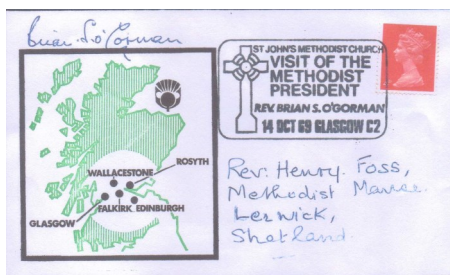 Brian S. O'Gorman
ST JOHN'S METHODIST CHURCH
VISIT OF THE
METHODIST
PRESIDENT
REV. BRIAN S. O'GORMAN
14 OCT 69 GLASGOW C2
WALLACESTONE
ROSYTH
GLASGOW
FALKIRK
EDINBURGH
Rev. Henry Foss,
Methodist Manse
Lerwick,
Shetland.